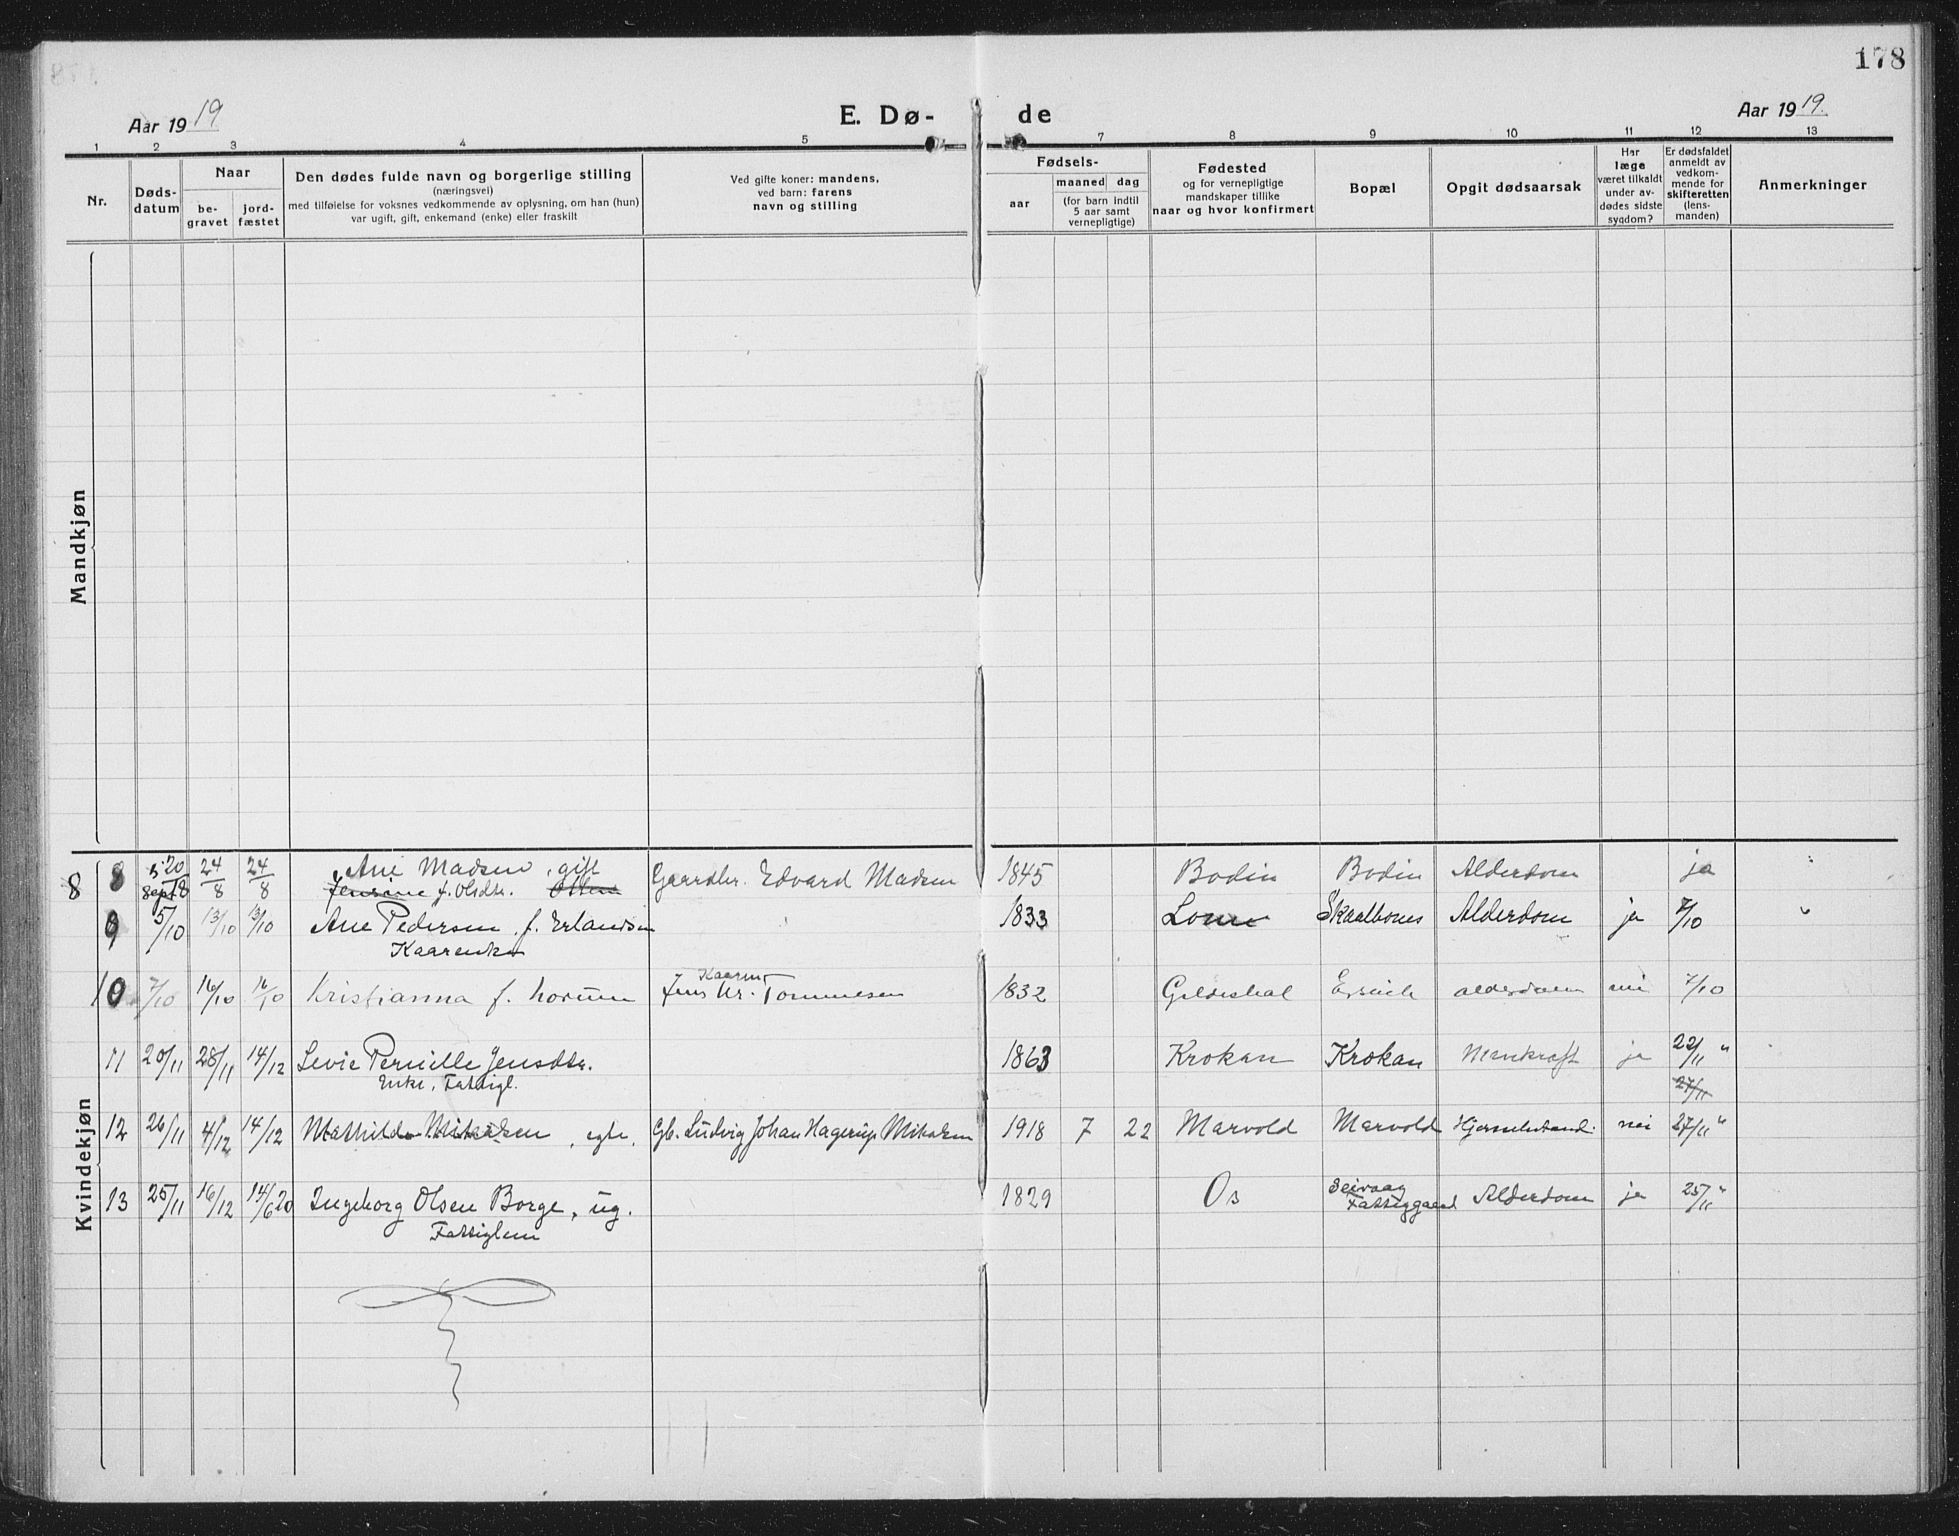 178
Aar 1919
E. Dø-
de
Aar 1919.
1 2 3 4 5 7 8 9 10 11 12 13
Nr.
Døds-
datum
Naar
be-
gravet
jord-
fæstet
Den dødes fulde navn og borgerlige stilling
(næringsvei)
med tilføielse for voksnes vedkommende av oplysning, om han (hun)
var ugift, gift, enkemand (enke) eller fraskilt
Ved gifte koner: mandens,
ved barn: farens
navn og stilling
Fødsels-
aar
maaned dag
(for barn indtil
5 aar samt
vernepligtige)
Fødested
og for vernepligtige
mandskaper tillike
naar og hvor konfirmert
Bopæl
Opgit dødsaarsak
Har
læge
været tilkaldt
under av-
dødes sidste
sygdom?
Er dødsfaldet
anmeldt av
vedkom-
mende for
skifteretten
(lens-
manden)
Anmerkninger
Mandkjøn
Kvindekjøn
8 8 20/8 24/8 24/8 Ane Madsen, gift Gaardbr. Edvard Madsen 1845 Bodin Bodin Alderdom ja
Sept Jensine f. Olsdtr. Olsen
9 5/10 13/10 13/10 Ane Pedersen f. Erlandsen 1833 Skaalbones Alderdom ja 7/10
Kaarenke
Kaarm
10 7/10 16/10 16/10 Kristianna f. Jens Kr. Tommesen 1832 Gildeskal alderdom nei 7/10
11 20/11 28/11 14/12 Levie Pernille Jensdtr. 1863 Krokan Krokan ja 22/11 "
Enke, Fattigl. 27/11
12 26/11 4/12 14/12 Mathilde Mikalsen, egte. Gb. Ludvig Johan Hagerup Mikalsen 1918 7 22 Marvold Marvold nei 27/11 "
13 25/11 16/12 14/6 20 Ingeborg Olsen Borge, ug. 1829 Os Seivaag Alderdom ja 25/11 "
Fattiglem Fattiggaard